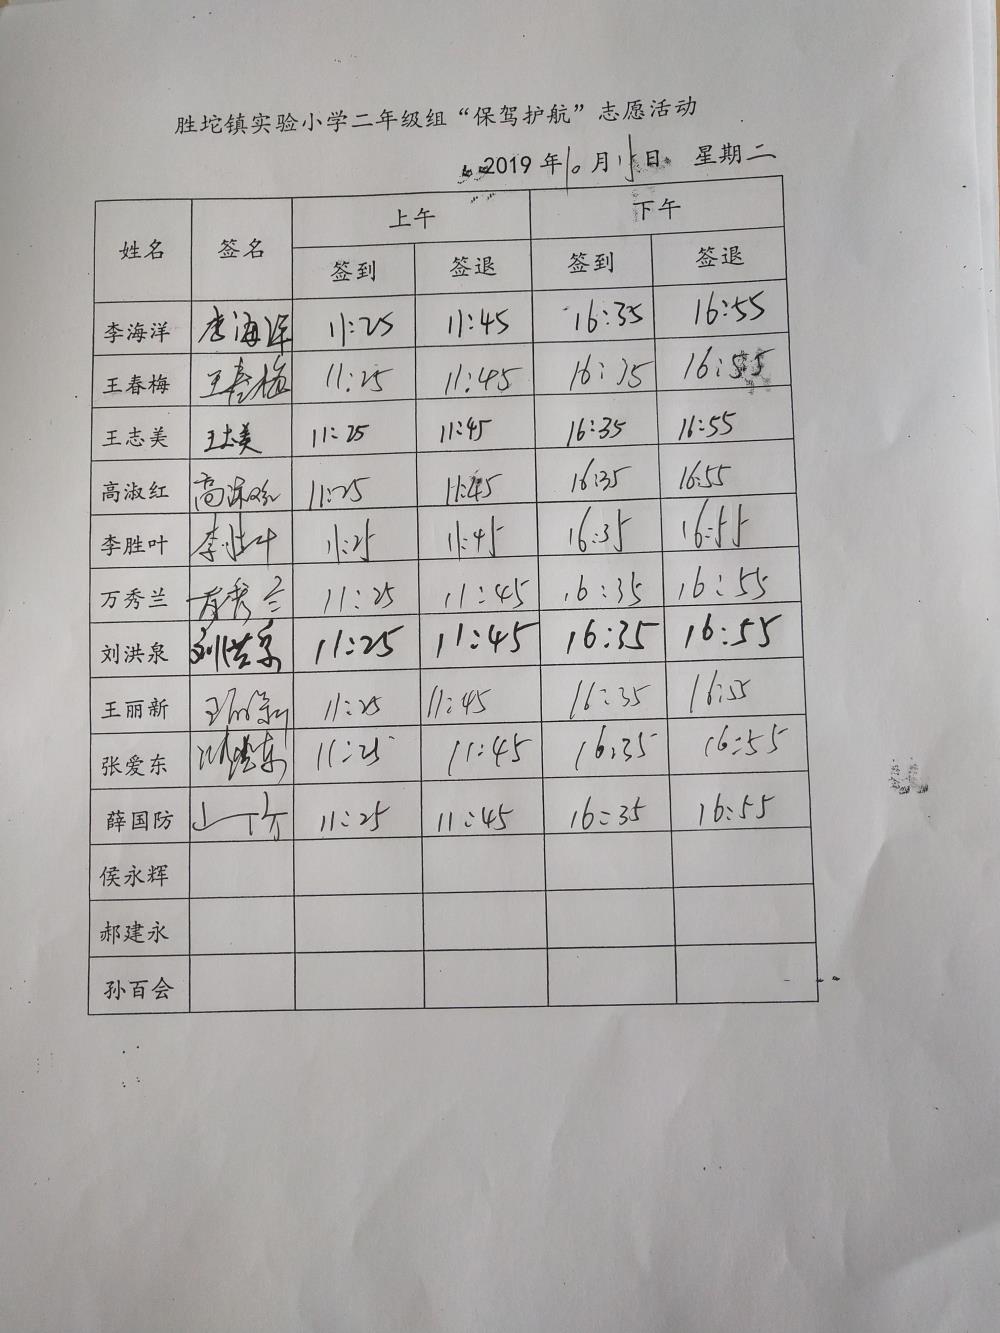 胜坨镇实验小学二年级组“保驾护航”志愿活动
2019年10月15日 星期二
姓名 签名 上午 下午
签到 签退 签到 签退
李海洋 李海洋 11:25 11:45 16:35 16:55
王春梅 王春梅 11:25 11:45 16:35 16:55
王志美 王志美 11:25 11:45 16:35 16:55
高淑红 高淑红 11:25 11:45 16:35 16:55
李胜叶 李胜叶 11:25 11:45 16:35 16:55
万秀兰 万秀兰 11:25 11:45 16:35 16:55
刘洪泉 刘洪泉 11:25 11:45 16:35 16:55
王丽新 王丽新 11:25 11:45 16:35 16:55
张爱东 张爱东 11:25 11:45 16:35 16:55
薛国防 11:25 11:45 16:35 16:55
侯永辉
郝建永
孙百会